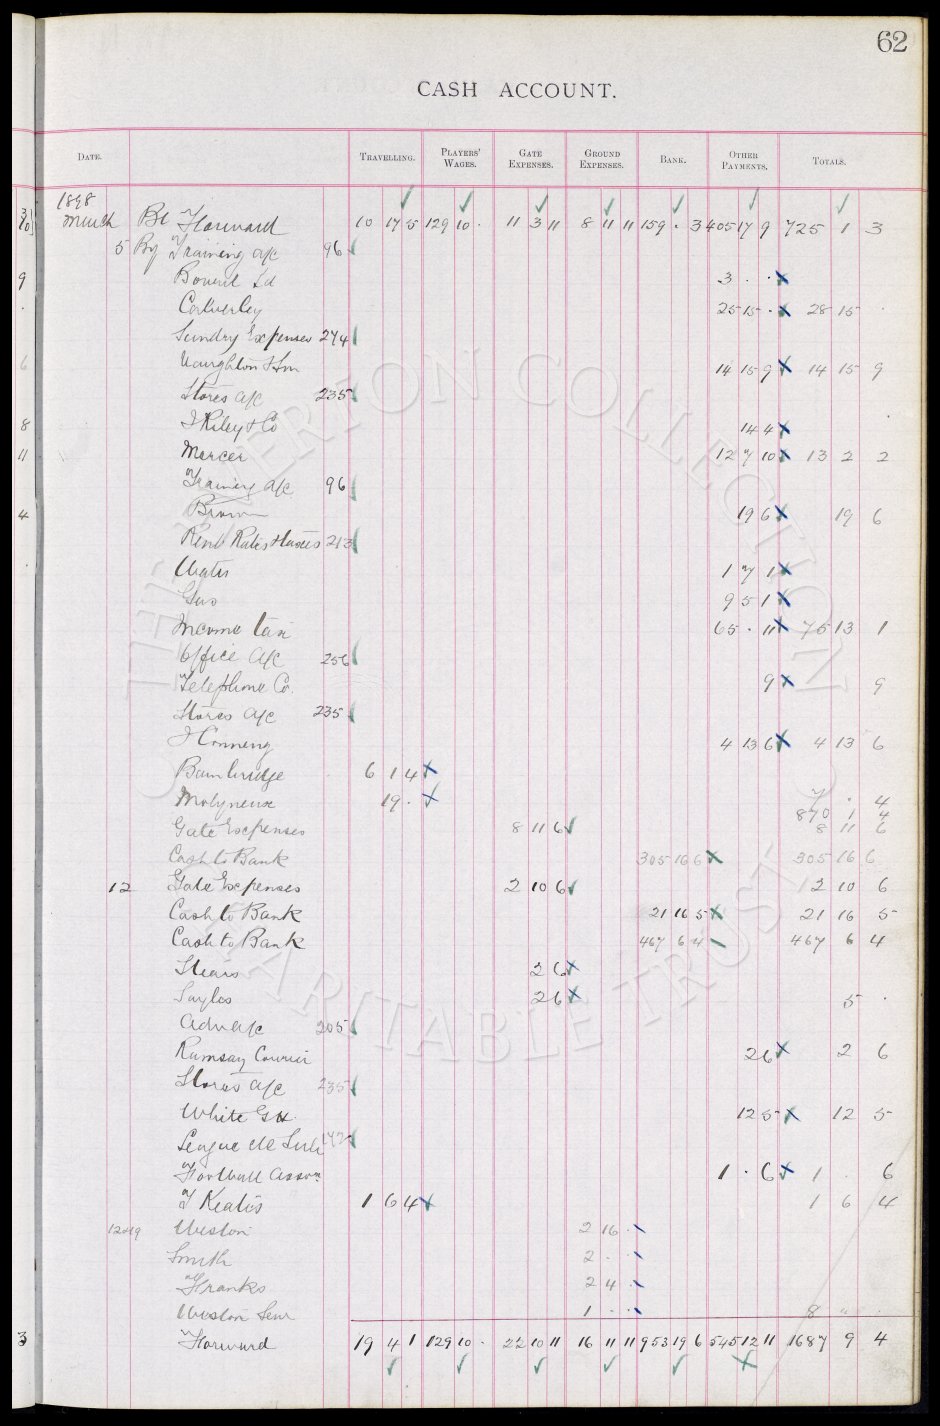 62
CASH ACCOUNT.
DATE. TRAVELLING. PLAYERS' WAGES. GATE EXPENSES. GROUND EXPENSES. BANK. OTHER PAYMENTS. TOTALS.
1898
March Bt Forward 10 17 5 129 10 . 11 3 11 8 11 11 159 . 3 405 17 9 725 1 3
5 By Training a/c 96
3 . .
Calverley 25 15 . 28 15 .
Sundry Expenses 274
Naughton & Son 14 15 9 14 15 9
Stores a/c 235
J Riley & Co 14 4
Mercer 12 7 10 13 2 2
Training a/c 96
Brown 19 6 19 6
Rent Rates & taxes 213
Water 1 7 1
Gas 9 5 1
Income tax 65 . 11 75 13 1
Office a/c 256
Telephone Co. 9 9
Stores a/c 235
4 13 6 4 13 6
Bainbridge 6 1 4
Molyneux 19 . 7 . 4
870 1 4
Gate Expenses 8 11 6 8 11 6
Cash to Bank 305 16 6 305 16 6
12 Gate Expenses 2 10 6 2 10 6
Cash to Bank 21 16 5 21 16 5
Cash to Bank 467 6 4 467 6 4
2 6
2 6 5 .
Adv a/c 205
Ramsay Courier 2 6 2 6
Stores a/c 235
White 12 5 12 5
League
Football Asson 1 . 6 1 . 6
T Keatis 1 6 4 1 6 4
12&19 Weston 2 16 .
Smith 2 . .
Franks 2 4 .
Weston Senr 1 . . 8 " .
Forward 19 4 1 129 10 . 22 10 11 16 11 11 953 19 6 545 12 11 1687 9 4
THE EVERTON COLLECTION CHARITABLE TRUST